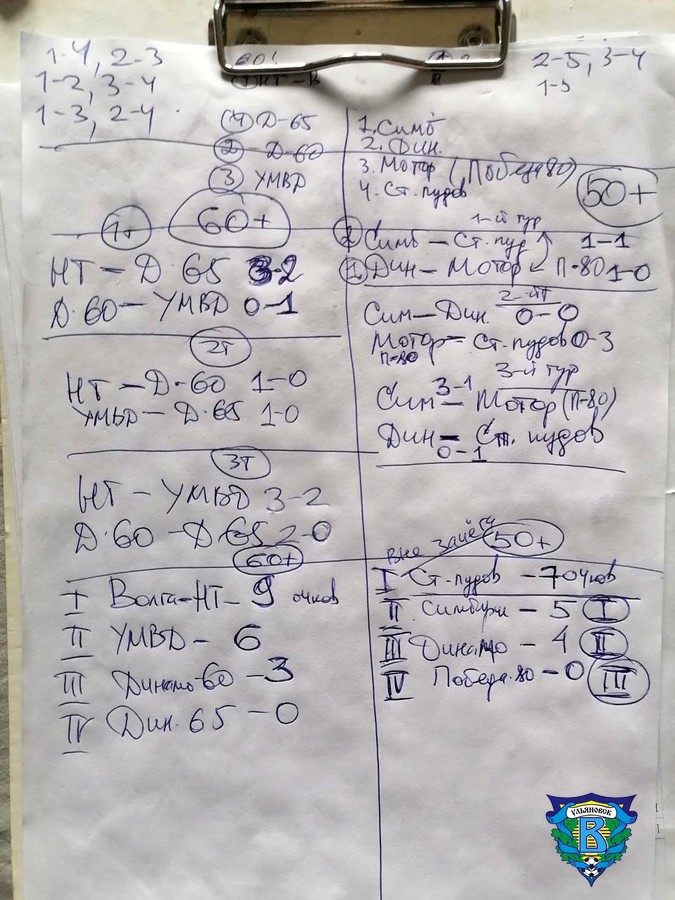 1-4, 2-3
1-2, 3-4
1-3, 2-4
④ Д-65
② Д-60
③ УМВД
60+
1т
НТ – Д. 65 3-2
Д. 60 – УМВД 0-1
2т
НТ – Д. 60 1-0
УМВД – Д. 65 1-0
3т
НТ – УМВД 3-2
Д. 60 – Д. 65 2-0
60+
I Волга-НТ – 9 очков
II УМВД – 6
III Динамо-60 – 3
IV Дин. 65 – 0
2-5, 3-4
1. Симб
2. Дин.
3. Мотор (Победа 80)
4. Ст. пудов
50+
1-й тур
Симб – Ст. пуд 1-1
Дин – Мотор П-80 1-0
2-йт
Сим – Дин. 0-0
Мотор – Ст. пудов 0-3
П-80
3-й тур
Сим 3-1 Мотор (П-80)
Дин – Ст. пудов
0-1
Вне зачёта 50+
I Ст. пудов – 7 очков
II Симбирк – 5 I
III Динамо – 4 II
IV Победа. 80 – 0 III
УЛЬЯНОВСК
В